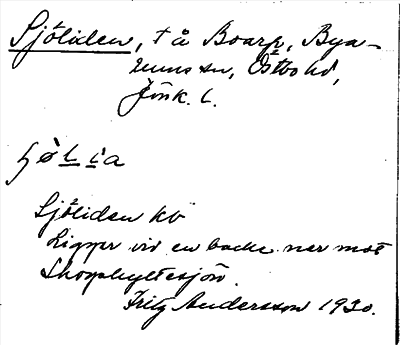 Sjöliden, t å Boarp, Bya-
rums sn, Östbo hd,
Jönk. l.
Sjöliden kb
Ligger vid en backe ner mot
Skogshyltesjön.
Fritz Andersson 1930.